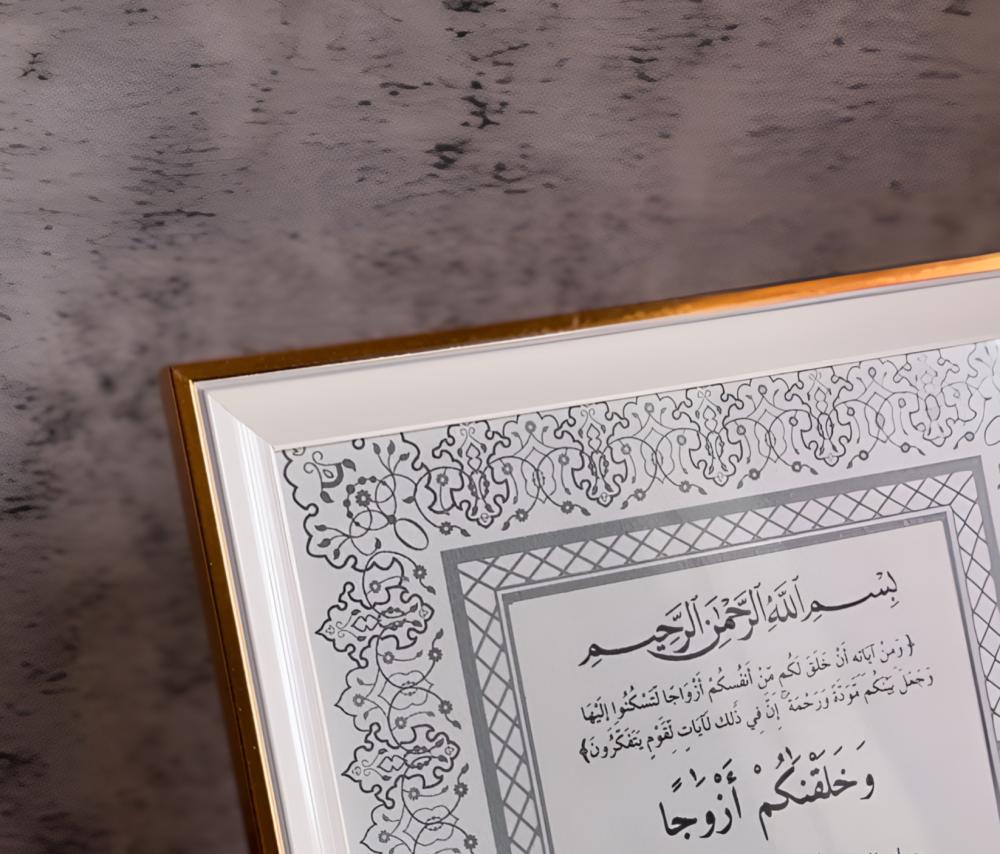 بِسْمِ ٱللَّهِ ٱلرَّحْمَٰنِ ٱلرَّحِيمِ
﴿ وَمِنْ آيَاتِهِ أَنْ خَلَقَ لَكُم مِّنْ أَنفُسِكُمْ أَزْوَاجًا لِّتَسْكُنُوا إِلَيْهَا
وَجَعَلَ بَيْنَكُم مَّوَدَّةً وَرَحْمَةً ۚ إِنَّ فِي ذَٰلِكَ لَآيَاتٍ لِّقَوْمٍ يَتَفَكَّرُونَ﴾
وَخَلَقْنَٰكُمْ أَزْوَٰجًا